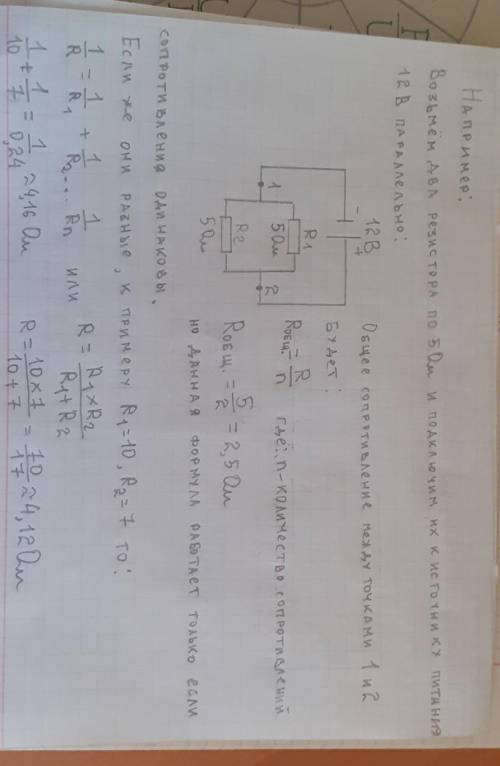 Например:
Возьмём два резистора по 5Ом и подключим их к источнику питания
12В параллельно:
12В
- +
1 2
R1
5Ом
R2
5Ом
Общее сопротивление между точками 1 и 2
будет:
Rобщ. = R/n где: n-количество сопротивлений
Rобщ. = 5/2 = 2,5Ом
но данная формула работает только если
сопротивления одинаковы.
Если же они разные, к примеру R1=10, R2=7 то:
1/R = 1/R1 + 1/R2... 1/Rn или R = R1×R2/R1+R2
1/10 + 1/7 = 1/0,24 ≈ 4,16 Ом R = 10×7/10+7 = 70/17 ≈ 4,12Ом